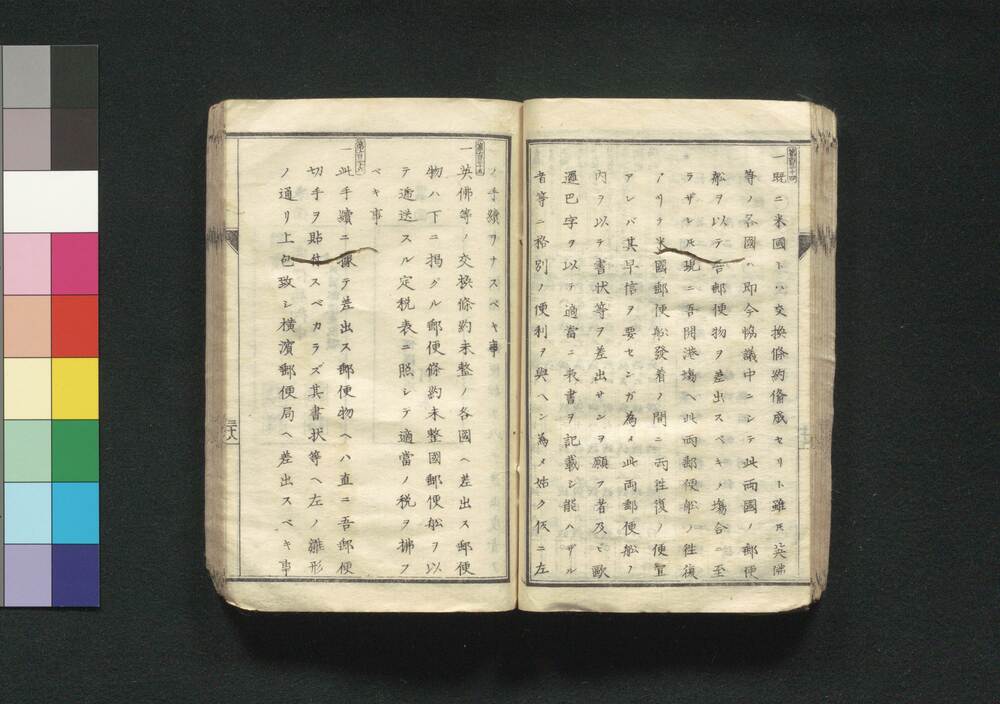 第百十四
一既ニ米國トハ交換條約脩成セリト雖𪜈英佛
等ノ各國ハ即今恊議中ニシテ此兩國ノ郵便
舩ヲ以テ吾郵便物ヲ差出スベキノ塲合ニ至
ラザレ𪜈現ニ吾開港塲ヘ此兩郵便舩ノ徃復
アリテ米國郵便舩發着ノ間ニ兩徃復ノ便宜
アレバ其早信ヲ要センガ為メ此兩郵便舩ノ
内ヲ以テ書状等ヲ差出サンヲ願フ者及ヒ歐
邏巴字ヲ以テ適當ニ表書ヲ記載シ能ハザル
者等ニ格別ノ便利ヲ與ヘン為メ姑ク仮ニ左
ノ手續ヲナスベキ事
第百十五
一英佛等ノ交換條約未整ノ各國ヘ差出ス郵便
物ハ下ニ揭グル郵便條約未整國郵便舩ヲ以
テ遞送スル定税表ニ照シテ適當ノ税ヲ拂フ
ベキ事
第百十六
一此手續ニ據テ差出ス郵便物ヘハ直ニ吾郵便
切手ヲ貼付スベカラズ其書状等ヘ左ノ雛形
ノ通リ上包致シ横濱郵便局ヘ差出スベキ事
三十八